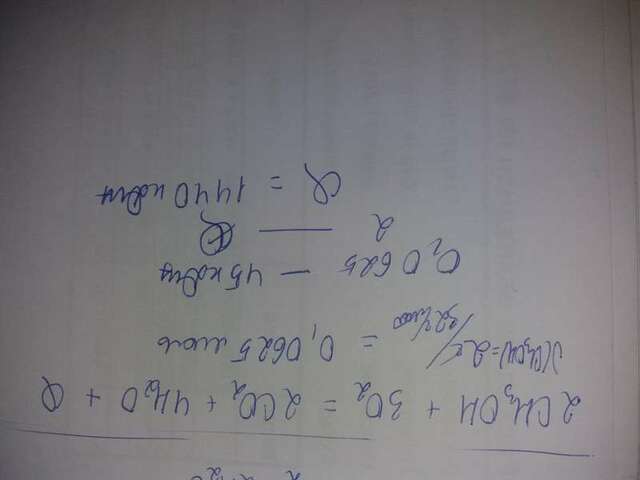 2CH₃OH + 3O₂ = 2CO₂ + 4H₂O + Q
ν(CH₃OH) = 2г/32г/моль = 0,0625 моль
0,0625 — 45 кДж
2 — Q
Q = 1440 кДж